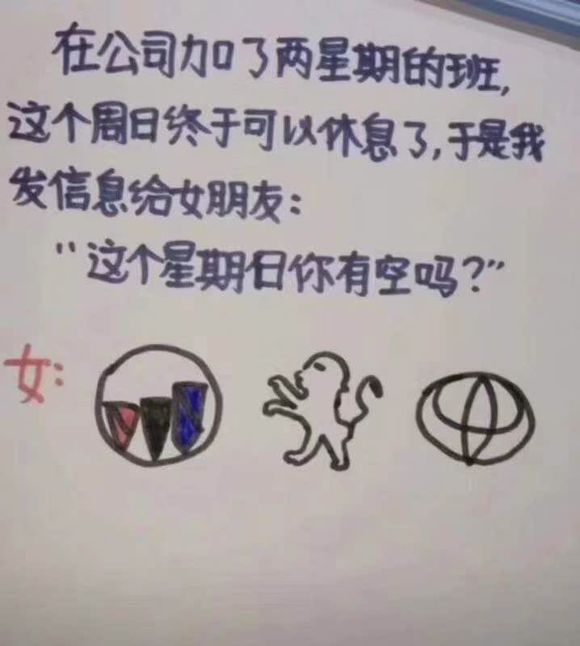 在公司加了两星期的班,
这个周日终于可以休息了,于是我
发信息给女朋友:
“这个星期日你有空吗?”
女: